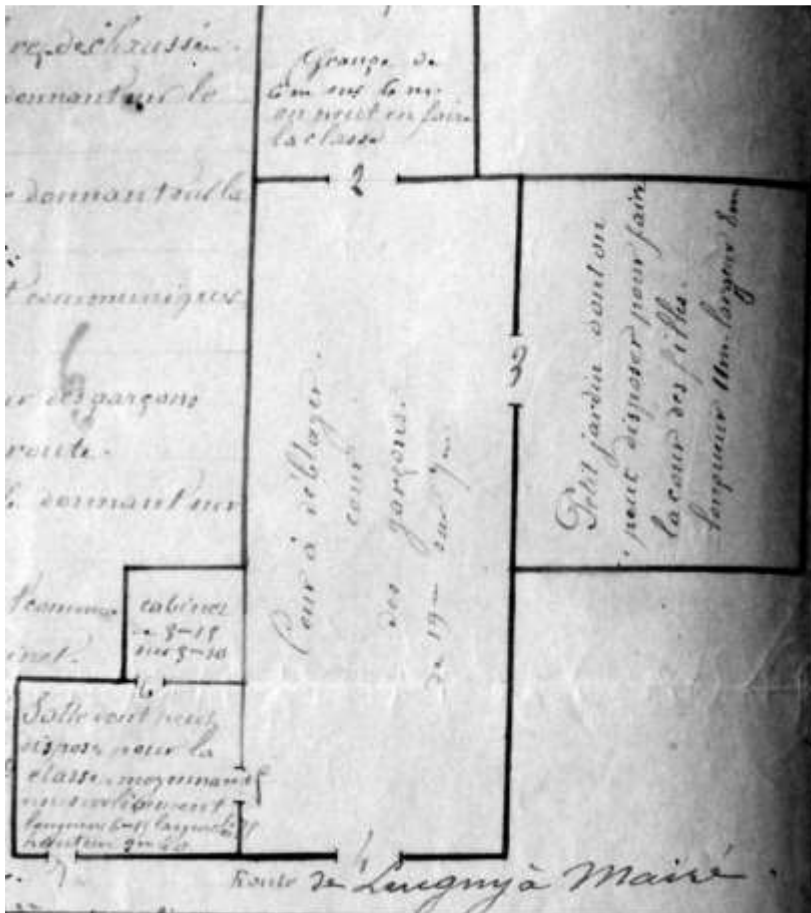 rez de chaussée.
donnant sur le
donnant sur la
t communiques
des garçons
route.
donnant sur
Grange de
6m sur 6m
on peut en faire
la classe
2
3
Petit jardin dont on
peut disposer pour faire
la cour des filles.
longueur 11m largeur 8m
Cour à déblayer.
cour
des garçons.
de 19m sur 7m
cabinet
de 3-15
sur 3-10
6
Salle dont peut
disposer pour la
classe moyennant
longueur largeur
hauteur 2m
Route de Lurgny à Mairé.